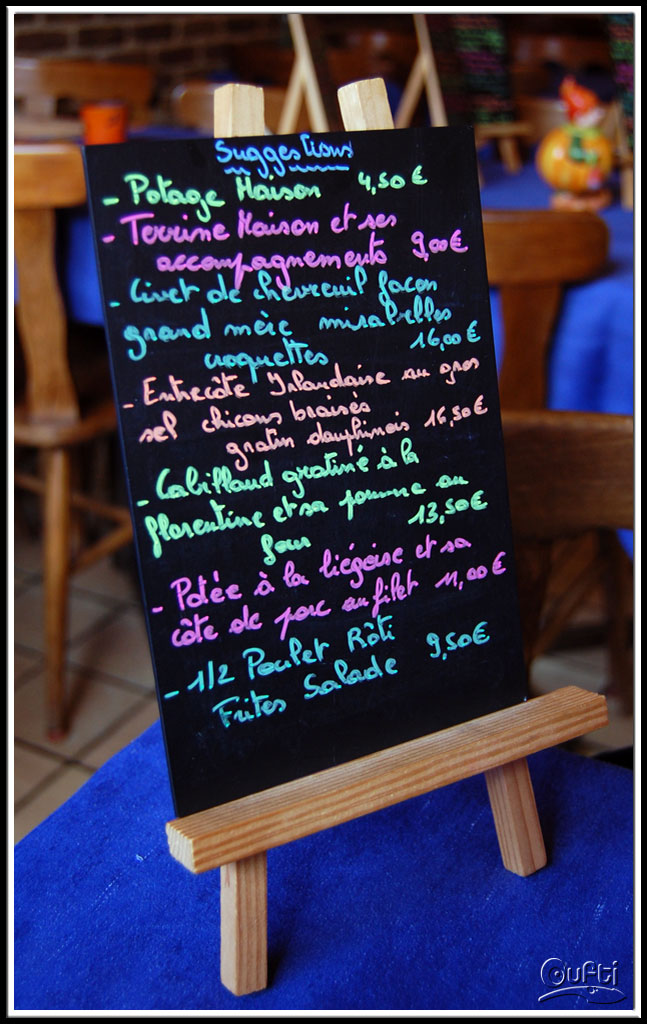 Suggestions
- Potage Maison 4,50 €
- Terrine Maison et ses
accompagnements 9,00 €
- Civet de chevreuil façon
grand mère mirabelles
croquettes 16,00 €
- Entrecôte Irlandaise au gros
sel chicons braisés
gratin dauphinois 16,50 €
- Cabillaud gratiné à la
florentine et sa pomme au
four 13,50 €
- Potée à la liégeoise et sa
côte de porc au filet 11,00 €
- 1/2 Poulet Rôti
Frites Salade 9,50 €
Oufti